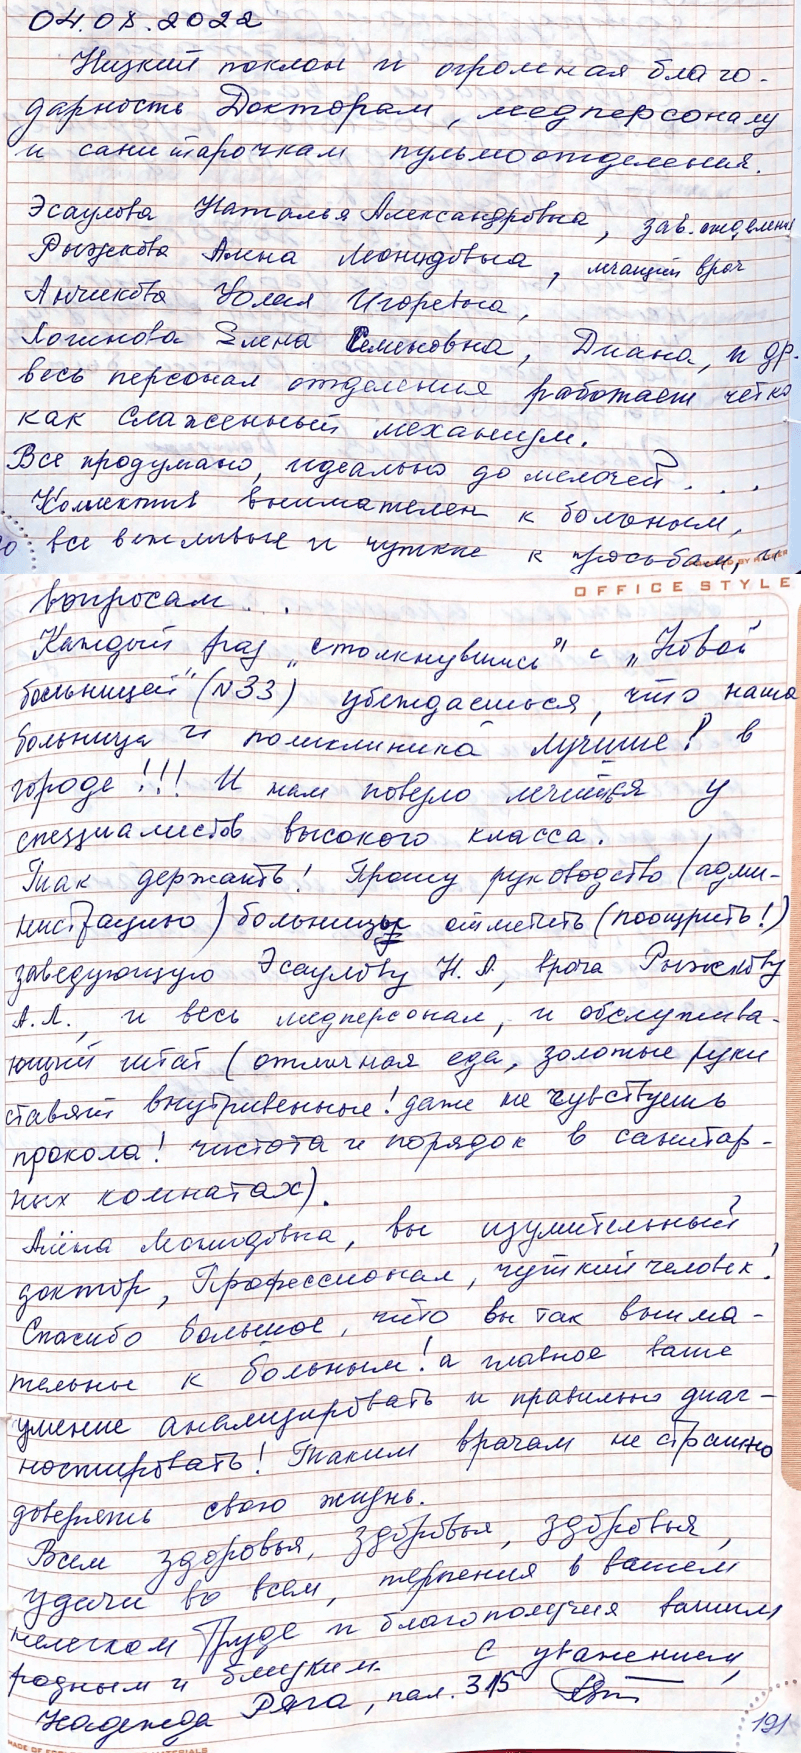 04.08.2022
Низкий поклон и огромная благо-
дарность Докторам, медперсоналу
и санитарочкам пульмоотделения.
Эсаулова Наталья Александровна, зав. отделения
Рыжкова Алёна Леонидовна, лечащий врач
Анчикова Юлия Игоревна,
Логинова Елена Семеновна, Диана, и др.
весь персонал отделения работает четко
как слаженный механизм.
Все продумано, идеально до мелочей...
Коллектив внимателен к больным,
все вежливые и чуткие к просьбам, и
OFFICE STYLE
вопросам...
Каждый раз „столкнувшись" с „Новой
больницей" (N33) убеждаешься, что наша
больница и поликлиника лучшие! в
городе!!! И нам повезло лечиться у
специалистов высокого класса.
Так держать! Прошу руководство (адми-
нистрацию) больницы отметить (поощрить!)
заведующую Эсаулову Н.А., врача Рыжкову
А.Л., и весь медперсонал, и обслужива-
ющий штат (отличная еда, золотые руки
ставят внутривенные! даже не чувствуешь
прокола! чистота и порядок в санитар-
ных комнатах).
Алёна Леонидовна, вы изумительный
доктор, Профессионал, чуткий человек!
Спасибо большое, что вы так внима-
тельны к больным! а главное ваше
умение анализировать и правильно диаг-
ностировать! Таким врачам не страшно
доверять свою жизнь.
Всем здоровья, здоровья, здоровья,
удачи во всем, терпения в вашем
нелегком Труде и благополучия вашим
родным и близким. С уважением,
Надежда Ряга, пал. 315
191